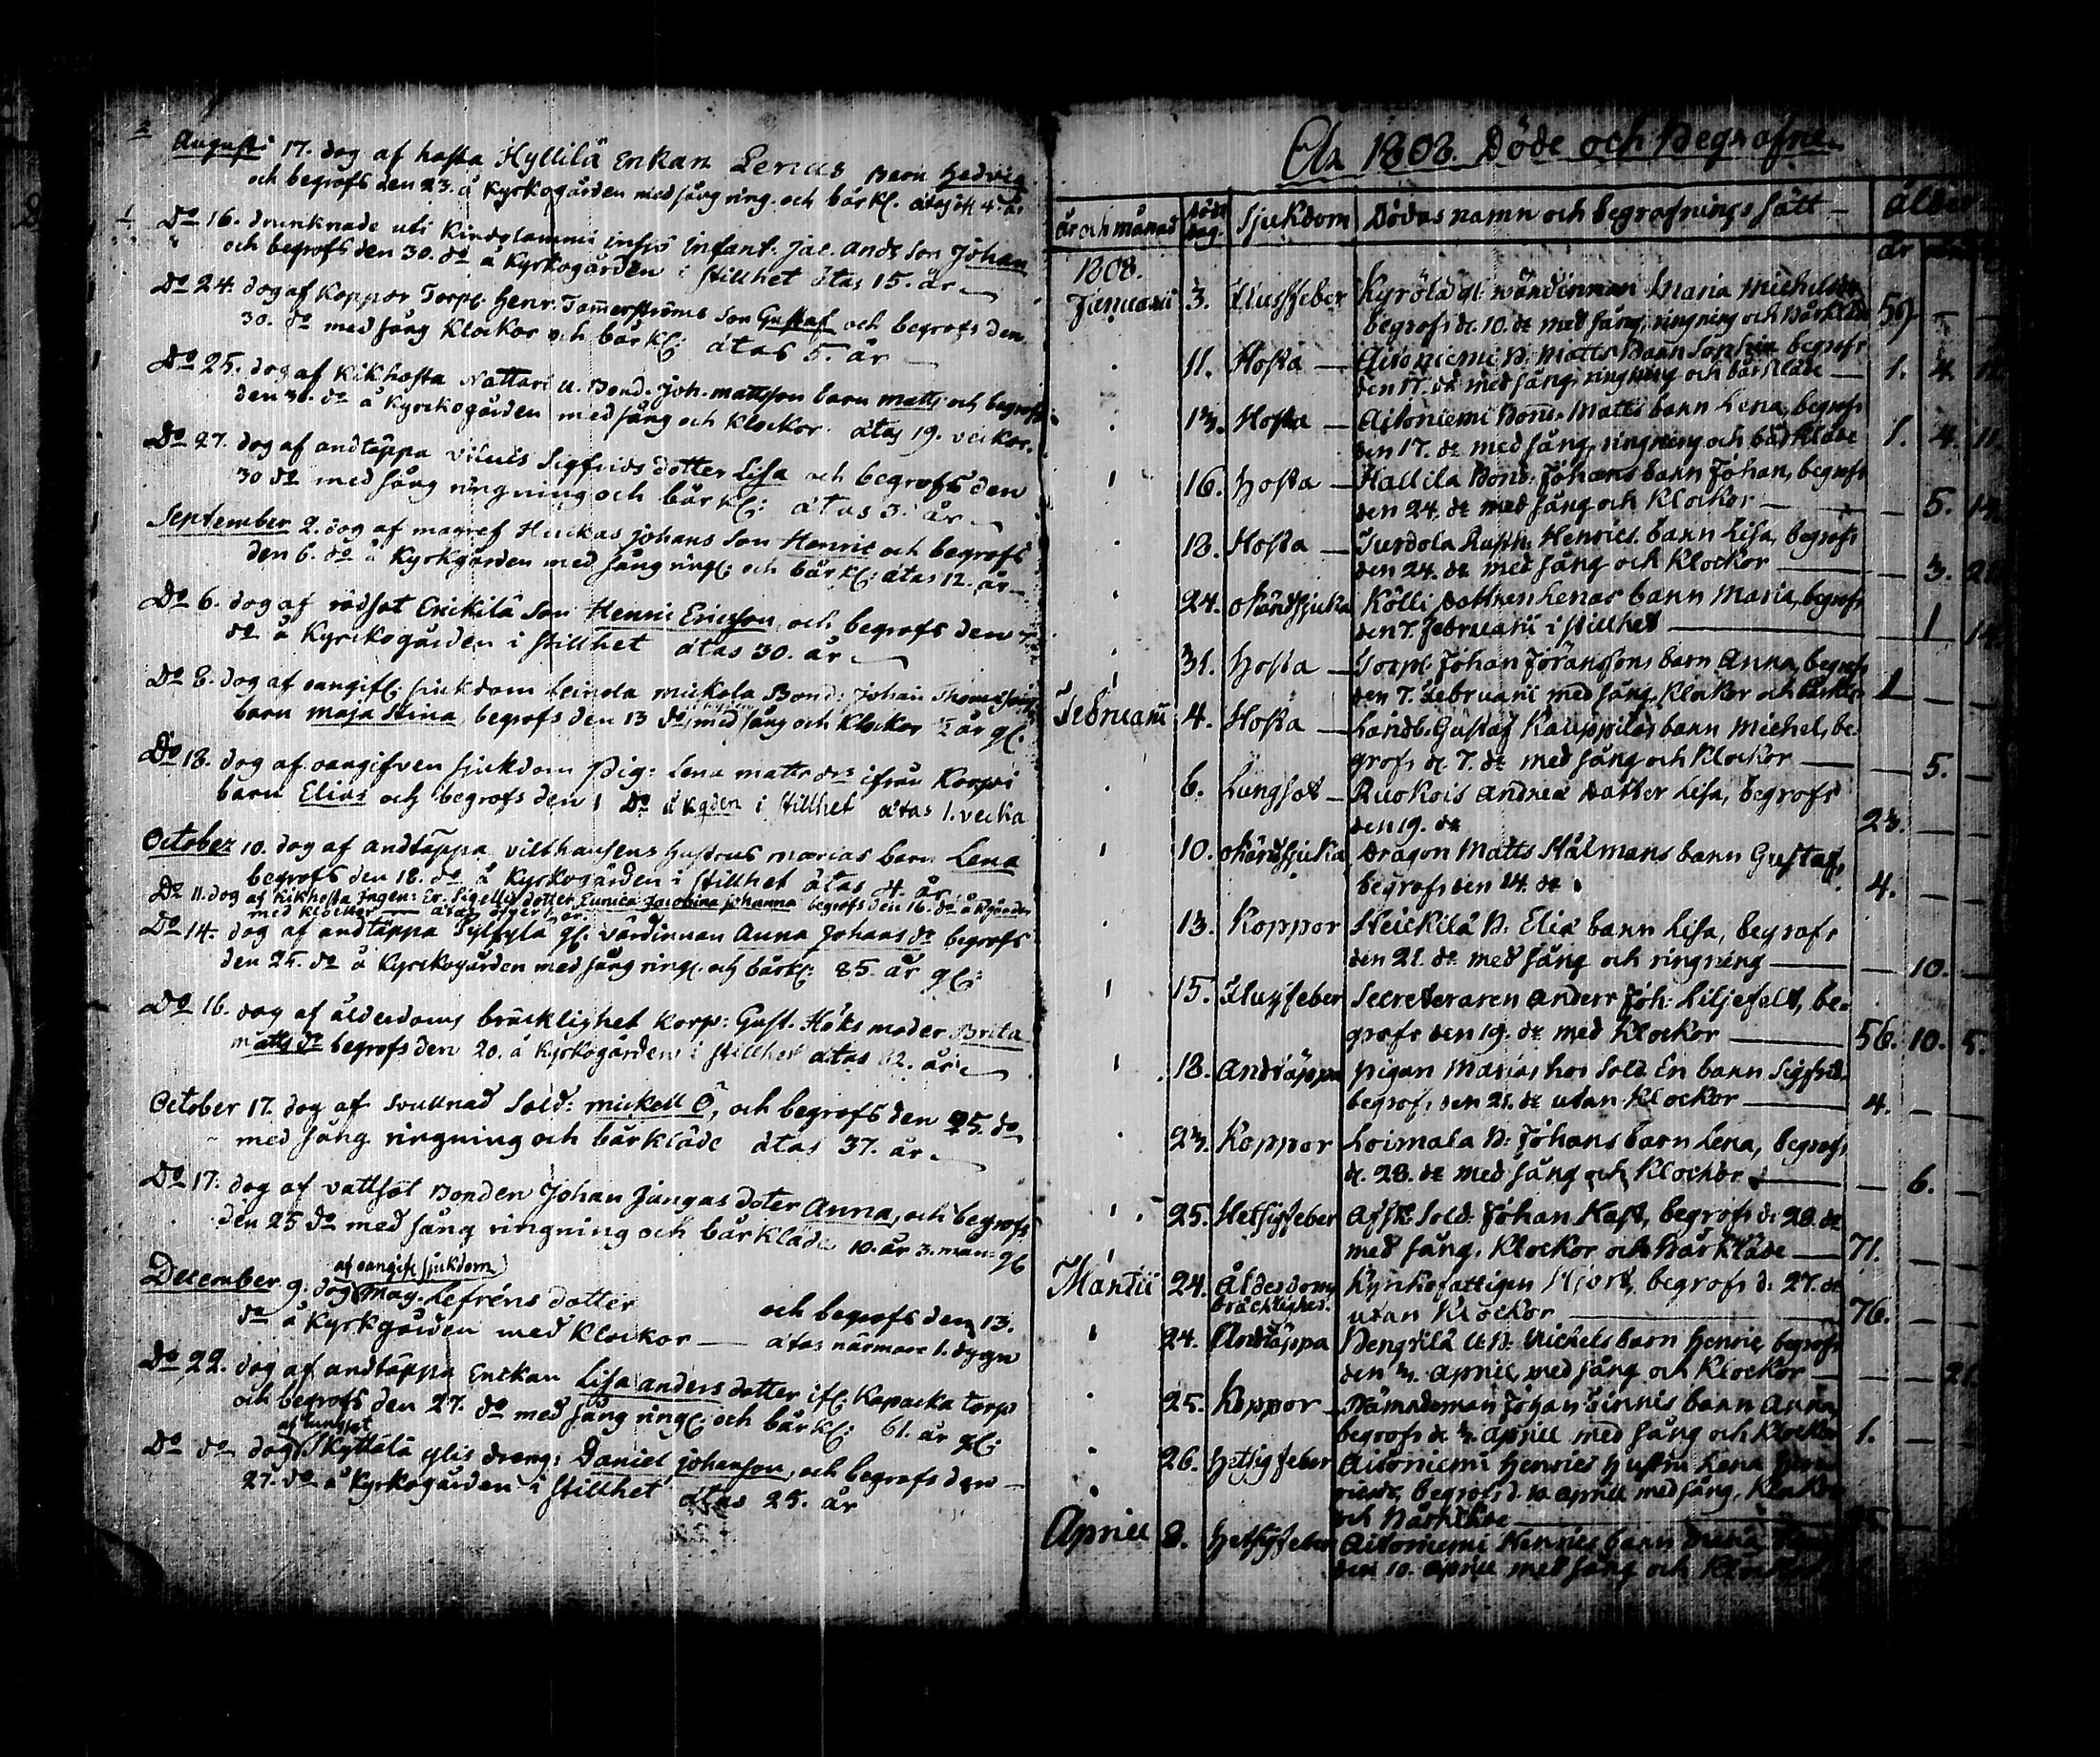 Augusti 17. dog af hosta Hyllilä Enkan Lenas Barn Hedvig
och begrofs den 23. å Kyrkogården med sång ring. och bårkl. åtas 4. år
Do 16. drunknade uti Infant. Jac. Ands Son Johan
och begrofs den 30. do å Kyrkogården i stillhet åtas 15. år
Do 24. dog af Koppor Torp. Henr. Tam̄erströms Son Gustaf och begrofs den
30. do med sång Klockor och bårkl: åtas 5. år
Do 25. dog af Kikhosta Nattari U. Bond. Joh. Mattsson barn matts och begrofs
den 30. do å Kyrckogården med sång och Klockor. åtas 19. veckor.
Do 27. dog af andtäppa Sigfrids dotter Lisa och begrofs den
30 do med sång ringning och bårkl: åtas 3. år
September 2. dog af magref Huckas johans Son Henric och begrofs
den 6. do å Kyrkgården med sång ring: och bårkl: åtas 12. år
Do 6. dog af rödsot Erickilä Son Henric Ericsson och begrofs den
do å Kyrckogården i stillhet åtas 30. år
Do 8. dog af oangifl: siukdom Leinola mickola Bond: Johan Thomassons
barn maja Stina begrofs den 13 do med sång och Klockor ½ år gl.
Do 18. dog af oangifven siukdom Pig: Lena matts dr ifrån Korpi
barn Elias och begrofs den do å Kgden i stillhet åtas 1. vecka
October 10. dog af andtäppa vilthausens hustrus marias barn Lena
begrofs den 18. do å Kyrkogården i stillhet åtas 4. år
Do 11. dog af Kikhosta Ingen: Er. Sigelli dotter Eunica Jacobina Johanna begrofs den 16. do å Kgården
med Klockor
Do 14. dog af andtäppa Sylfylä gl. värdinnan Anna Johans dr begrofs
den 25. do å Kyrckogården med sång ring. och bårkl: 85. år gl:
Do 16. dog af ålderdoms bräcklighet Korp: Gust. Höks moder Brita
matts dr begrofs den 20. å Kyrkogården i stillhet åtas 82. år
October 17. dog af Svullnad Sold: mickell Ö, och begrofs den 25. do
med sång ringning och bårkläde åtas 37. år
Do 17. dog af vattsot Bonden Johan Jungas doter Anna, och begrofs
den 25 do med sång ringning och bårkläde 10. år 3. mån: gl
af oangift sjukdom
December 9. dog Mag. Lefréns dotter och begrofs den 13.
do å Kyrkgården med Klockor — åtas närmare 1. dygn
Do 22. dog af andtäppa Enckan Lisa anders dotter if. Kapacka torp
och begrofs den 27. do med sång ring: och bårkl: 61. år gl:
af lungsot
Do do dog Kyttälä ylis dreng: Daniel johansson, och begrofs den
27. do å Kyrkogården i stillhet åtas 25. år
År 1808. Döde och Begrafne
år och månad döds dag. Sjukdom Dödas namn och begrafnings sätt ålder
år
1808.
Januarii 3. Flussfeber Kyrölä gl. wärdinnan Maria Michelsdr
begrofs d. 10. de med sång, ringning och Bårkläde 59 — —
11. Hosta — Aitoniemi B. Matts Barn Sophia begrofs
den 17. de med sång, ringning och bårkläde — 1. 4.
13. Hosta — Aitoniemi Bond. Matts barn Lena, begrofs
den 17. de med sång, ringning och bårkläde 1. 4. 11.
16. Hosta — Hallila Bond. Johans barn Johan, begrofs
den 24. de med sång och Klockor — — 5.
18. Hosta — Turdola Rusth: Henrics barn Lisa, begrofs
den 24. de med sång och Klockor — — 3.
24. okänd sjuka Kölli Dottren Lenas barn Maria, begrofs
den 7. Februarii i stillhet — — 1
31. Hosta — Torp. Johan Jöranssons barn Anna, begrofs
den 7. Februarii med sång, Klockor och 1 — —
Februarii 4. Hosta — Landb. Gustaf Kauppilas barn Michel, be-
grofs d. 7. de med sång och Klockor — — 5. —
6. Lungsot — Ruokois Andreæ Datter Lisa, begrofs
den 19. de 23. — —
10. okänd sjuka Dragon Matts Stålmans barn Gustaf,
begrofs den 14. de 4. — —
13. Koppor Heickilä B: Eliæ barn Lisa, begrofs
den 21. de med sång och ringning — — 10. —
15. Flussfeber Secreteraren Anders Joh: Liljefelt, be-
grofs den 19. de med Klockor — 56. 10. 5.
18. Andtäppa pigan Marias hos Sold. En barn Sigfrid
begrofs den 21. de utan Klockor — 4. — —
23. Koppor Loimala B: Johans barn Lena, begrofs
d. 28. de med sång och Klockor — — 6. —
25. Hetsigfeber Afsk: Sold: Johan Hast, begrofs d: 28. de
med sång, Klockor och Bårkläde — 71. — —
Martii 24. Ålderdoms Kyrkofattigen Hjort, begrofs d: 27. de
bräcklighet. utan Klockor — 76. — —
24. Andtäppa Bengtilä U.B: Michels barn Henric begrofs
den 3. April med sång och Klockor — — —
25. Koppor — Nämndeman Johan Sinnis barn Anna,
begrofs d. 3. April med sång och Klockor 1. — —
26. Hetsig feber Aitoniemi Henrics Hustru Lena
begrofs d. 10. April med sång, Klockor
och Bårkläde —
April 8. Hetsigfeber Aitoniemi Henrics barn Maria
den 10. April med sång och Klockor